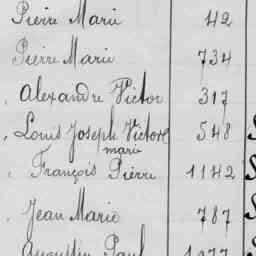 Pierre Marie 42
Pierre Marie 734
Alexandre Victor 317
Louis Joseph Victor 548
marie
François Pierre 1142
Jean Marie 787
Augustin Paul